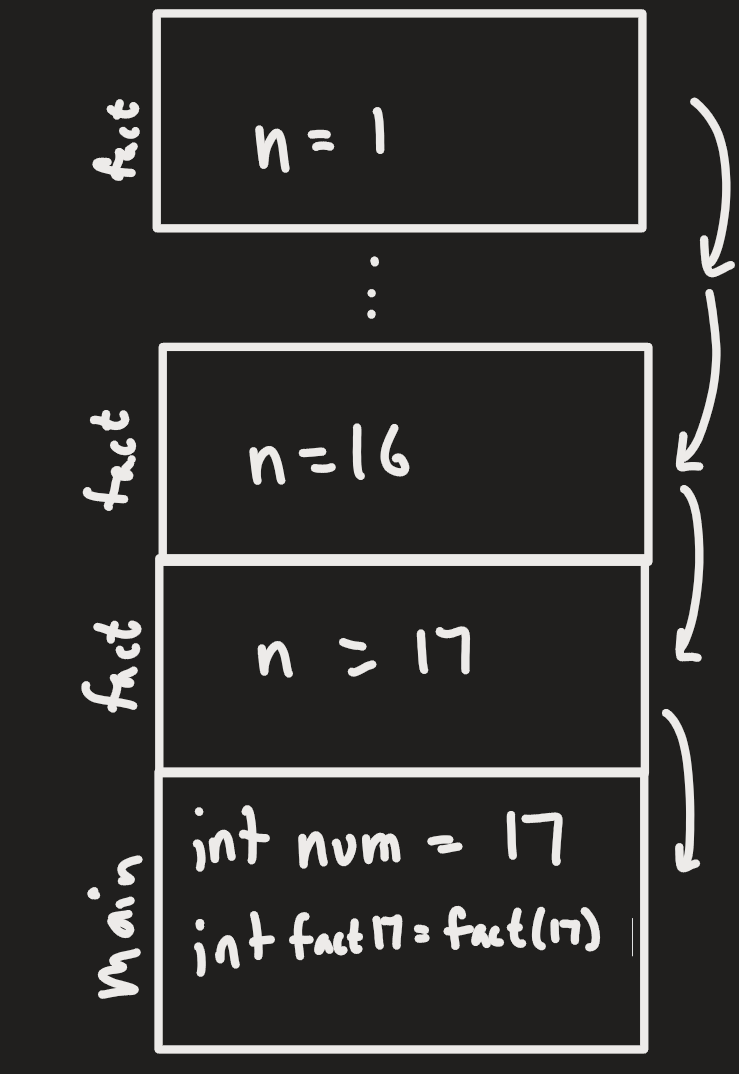 fact
n = 1
fact
n = 16
fact
n = 17
main
int num = 17
int fact17 = fact(17)